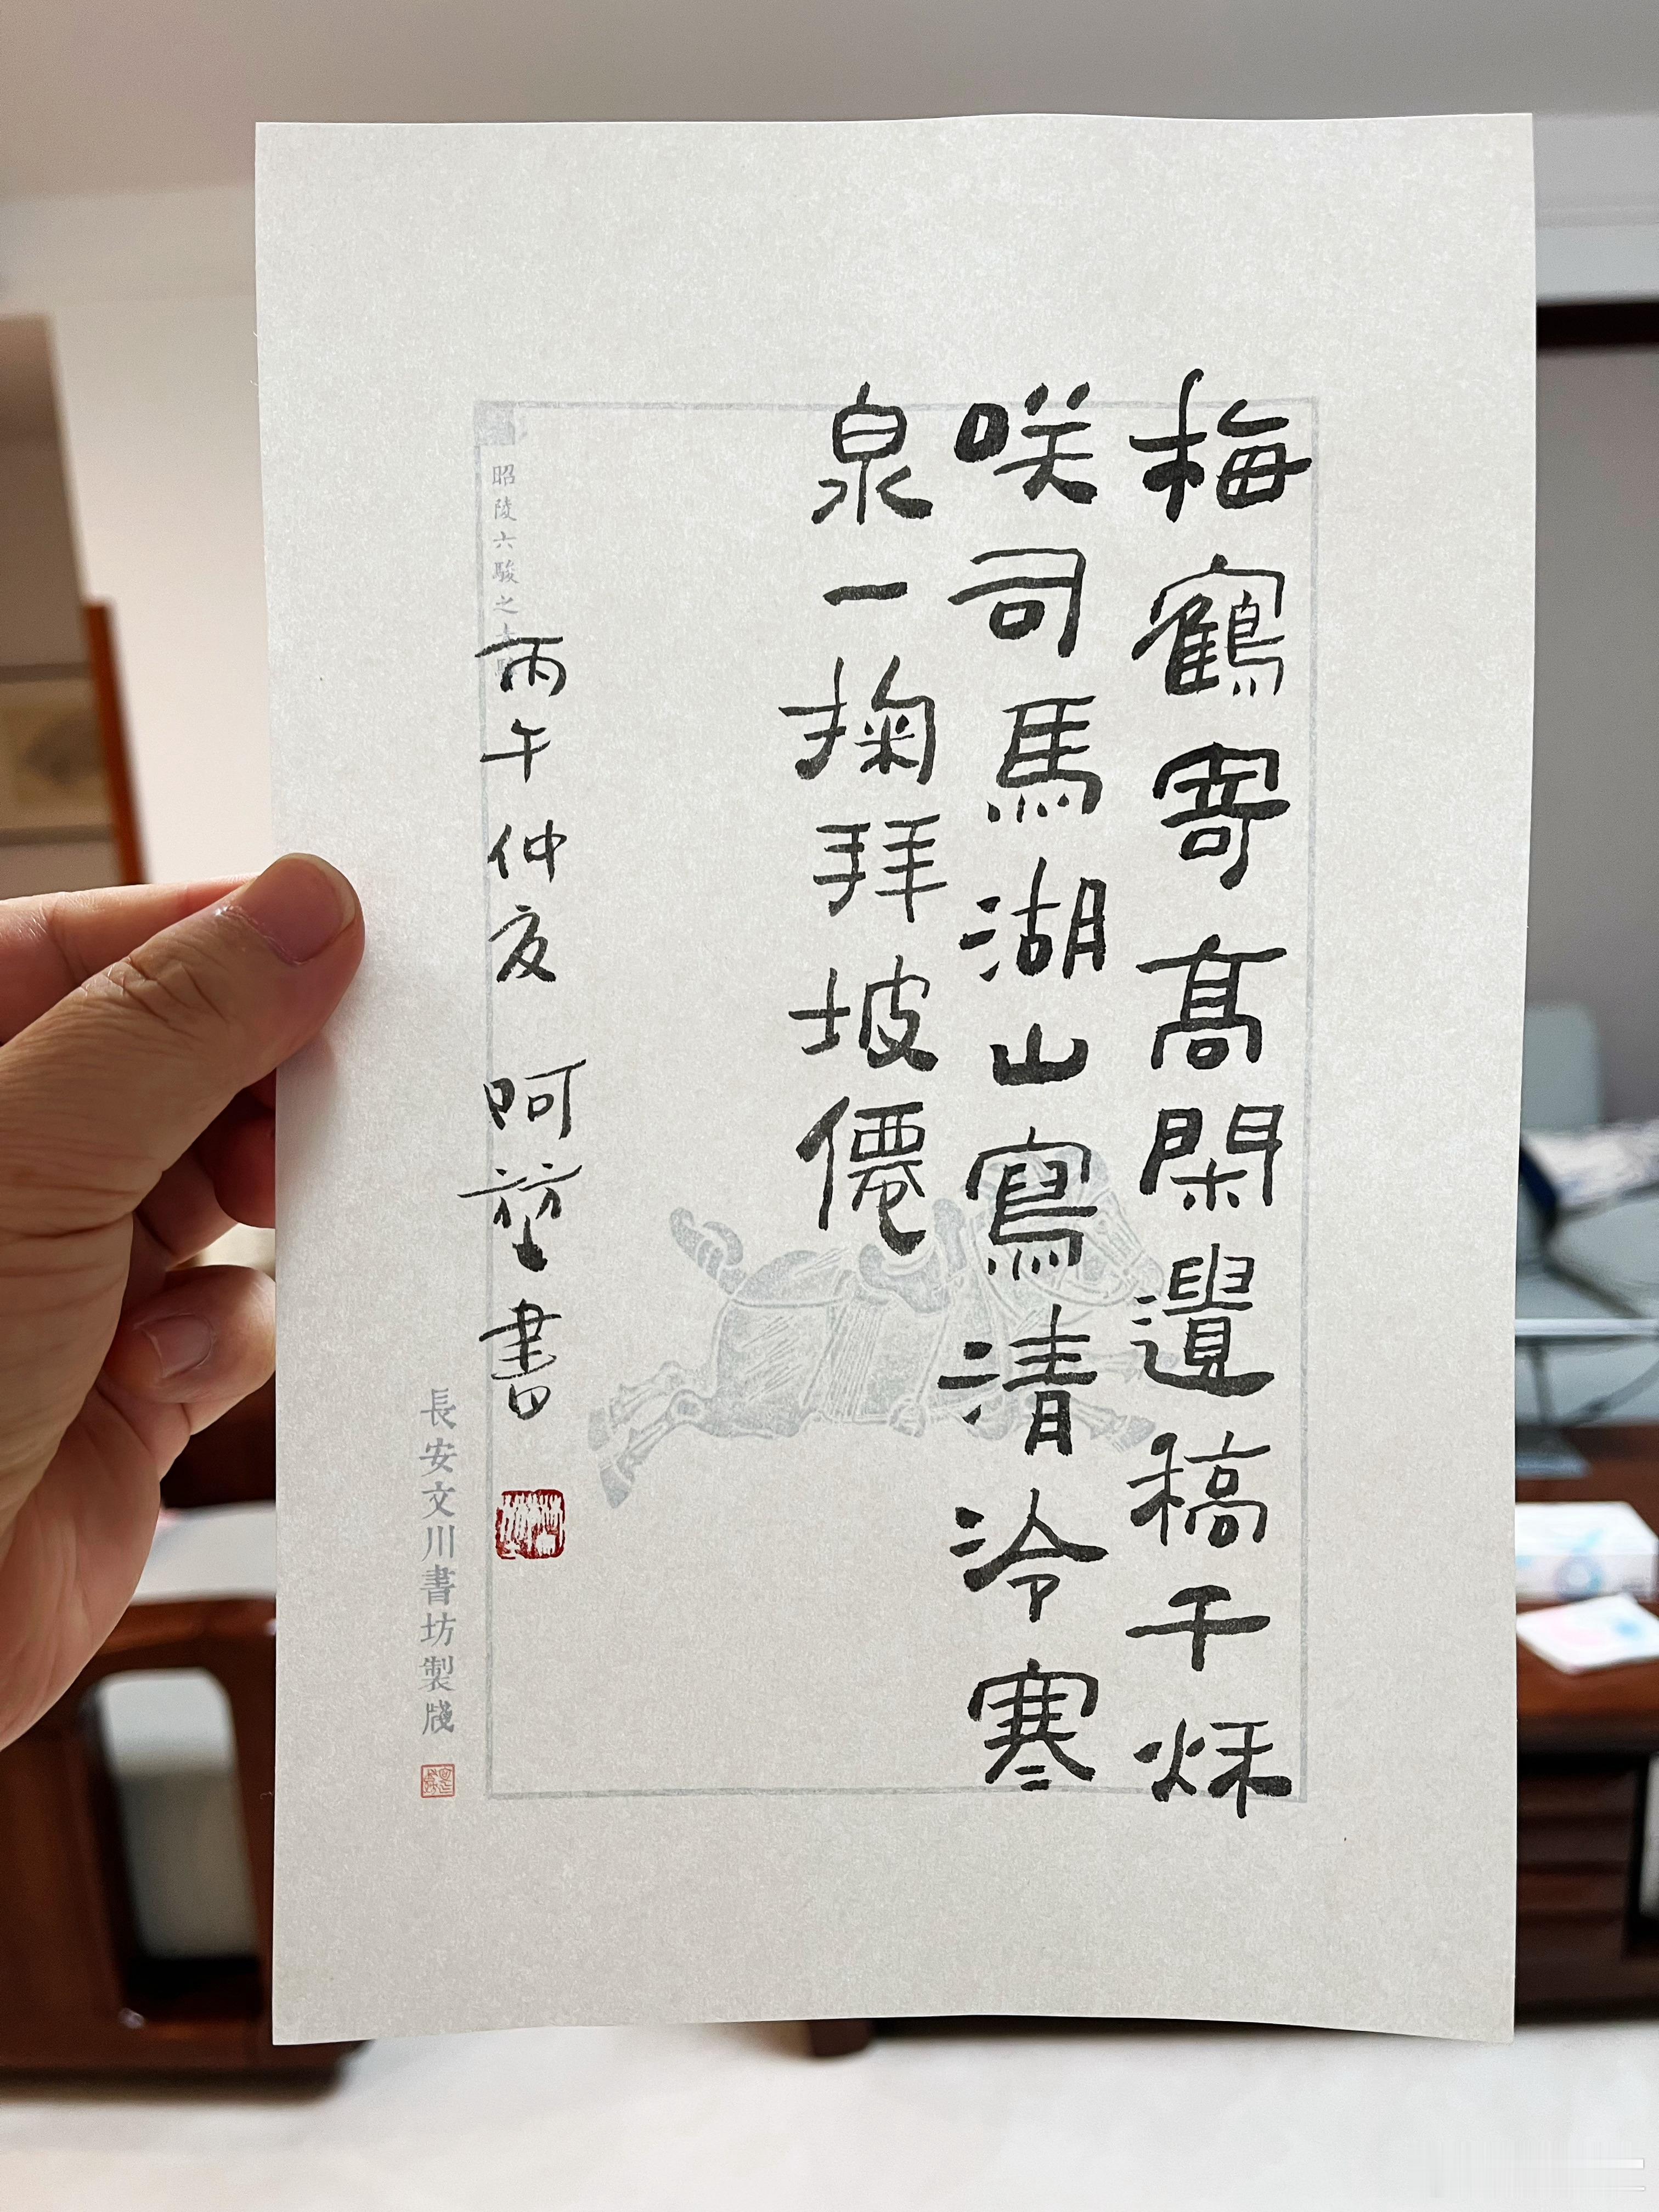 梅鶴寄髙閑遺稿千烌
咲司馬湖山寫清冷寒
泉一掬拜坡僊
丙午仲夏 呵堃書
昭陵六駿之
長安文川書坊製牋